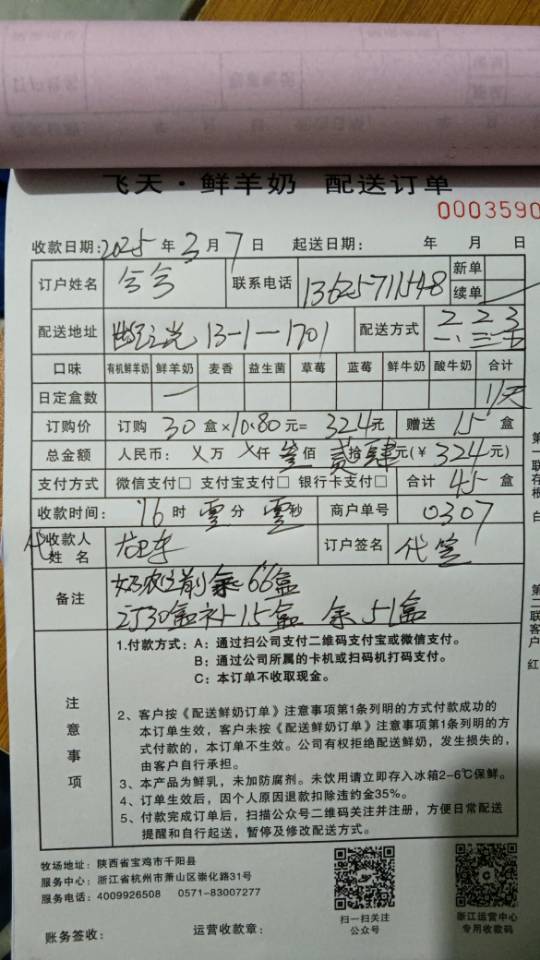 飞天·鲜羊奶 配送订单
0003590
收款日期：2025年3月7日 起送日期： 年 月 日
订户姓名 兮兮 联系电话 13625711548 新单
续单
配送地址 13-1-1701 配送方式 2 2 3
一、三、五
口味 有机鲜羊奶 鲜羊奶 麦香 益生菌 草莓 蓝莓 鲜牛奶 酸牛奶 合计
日定盒数 一 1/天
订购价 订购30盒×10.80元=324元 赠送15盒
总金额 人民币：X万X仟叁佰贰拾肆元(￥324元)
支付方式 微信支付□ 支付宝支付□ 银行卡支付□ 合计45盒
收款时间： 16时零分零秒 商户单号 0307
代收款人
姓名 订户签名 代签
备注 余66盒
订30盒补15盒 余51盒
注意事项
1.付款方式：A：通过扫公司支付二维码支付宝或微信支付。
B：通过公司所属的卡机或扫码机打码支付。
C：本订单不收取现金。
2、客户按《配送鲜奶订单》注意事项第1条列明的方式付款成功的
本订单生效，客户未按《配送鲜奶订单》注意事项第1条列明的方
式付款的，本订单不生效。公司有权拒绝配送鲜奶，发生损失的，
由客户自行承担。
3、本产品为鲜乳，未加防腐剂。未饮用请立即存入冰箱2-6℃保鲜。
4、订单生效后，因个人原因退款扣除违约金35%。
5、付款完成订单后，扫描公众号二维码关注并注册，方便日常配送
提醒和自行起送，暂停及修改配送方式。
牧场地址：陕西省宝鸡市千阳县
服务中心：浙江省杭州市萧山区崇化路31号
服务电话：4009926508 0571-83007277
扫一扫关注
公众号
浙江运营中心
专用收款码
账务签收： 运营收款章：
第一联存根 白
第二联客户 红